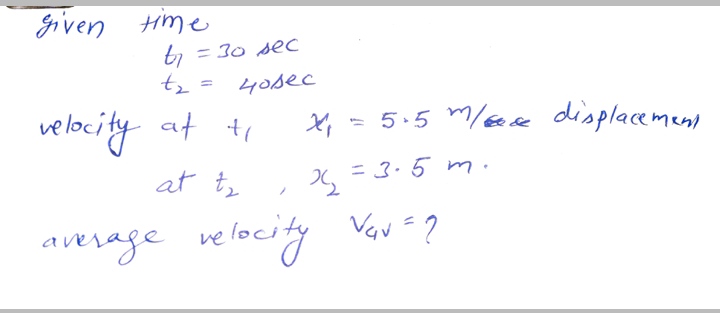 given time
t1 = 30 sec
t2 = 40sec
velocity at t1 x1 = 5.5 m/ displacement
at t2, x2 = 3.5 m.
average velocity Vav = ?